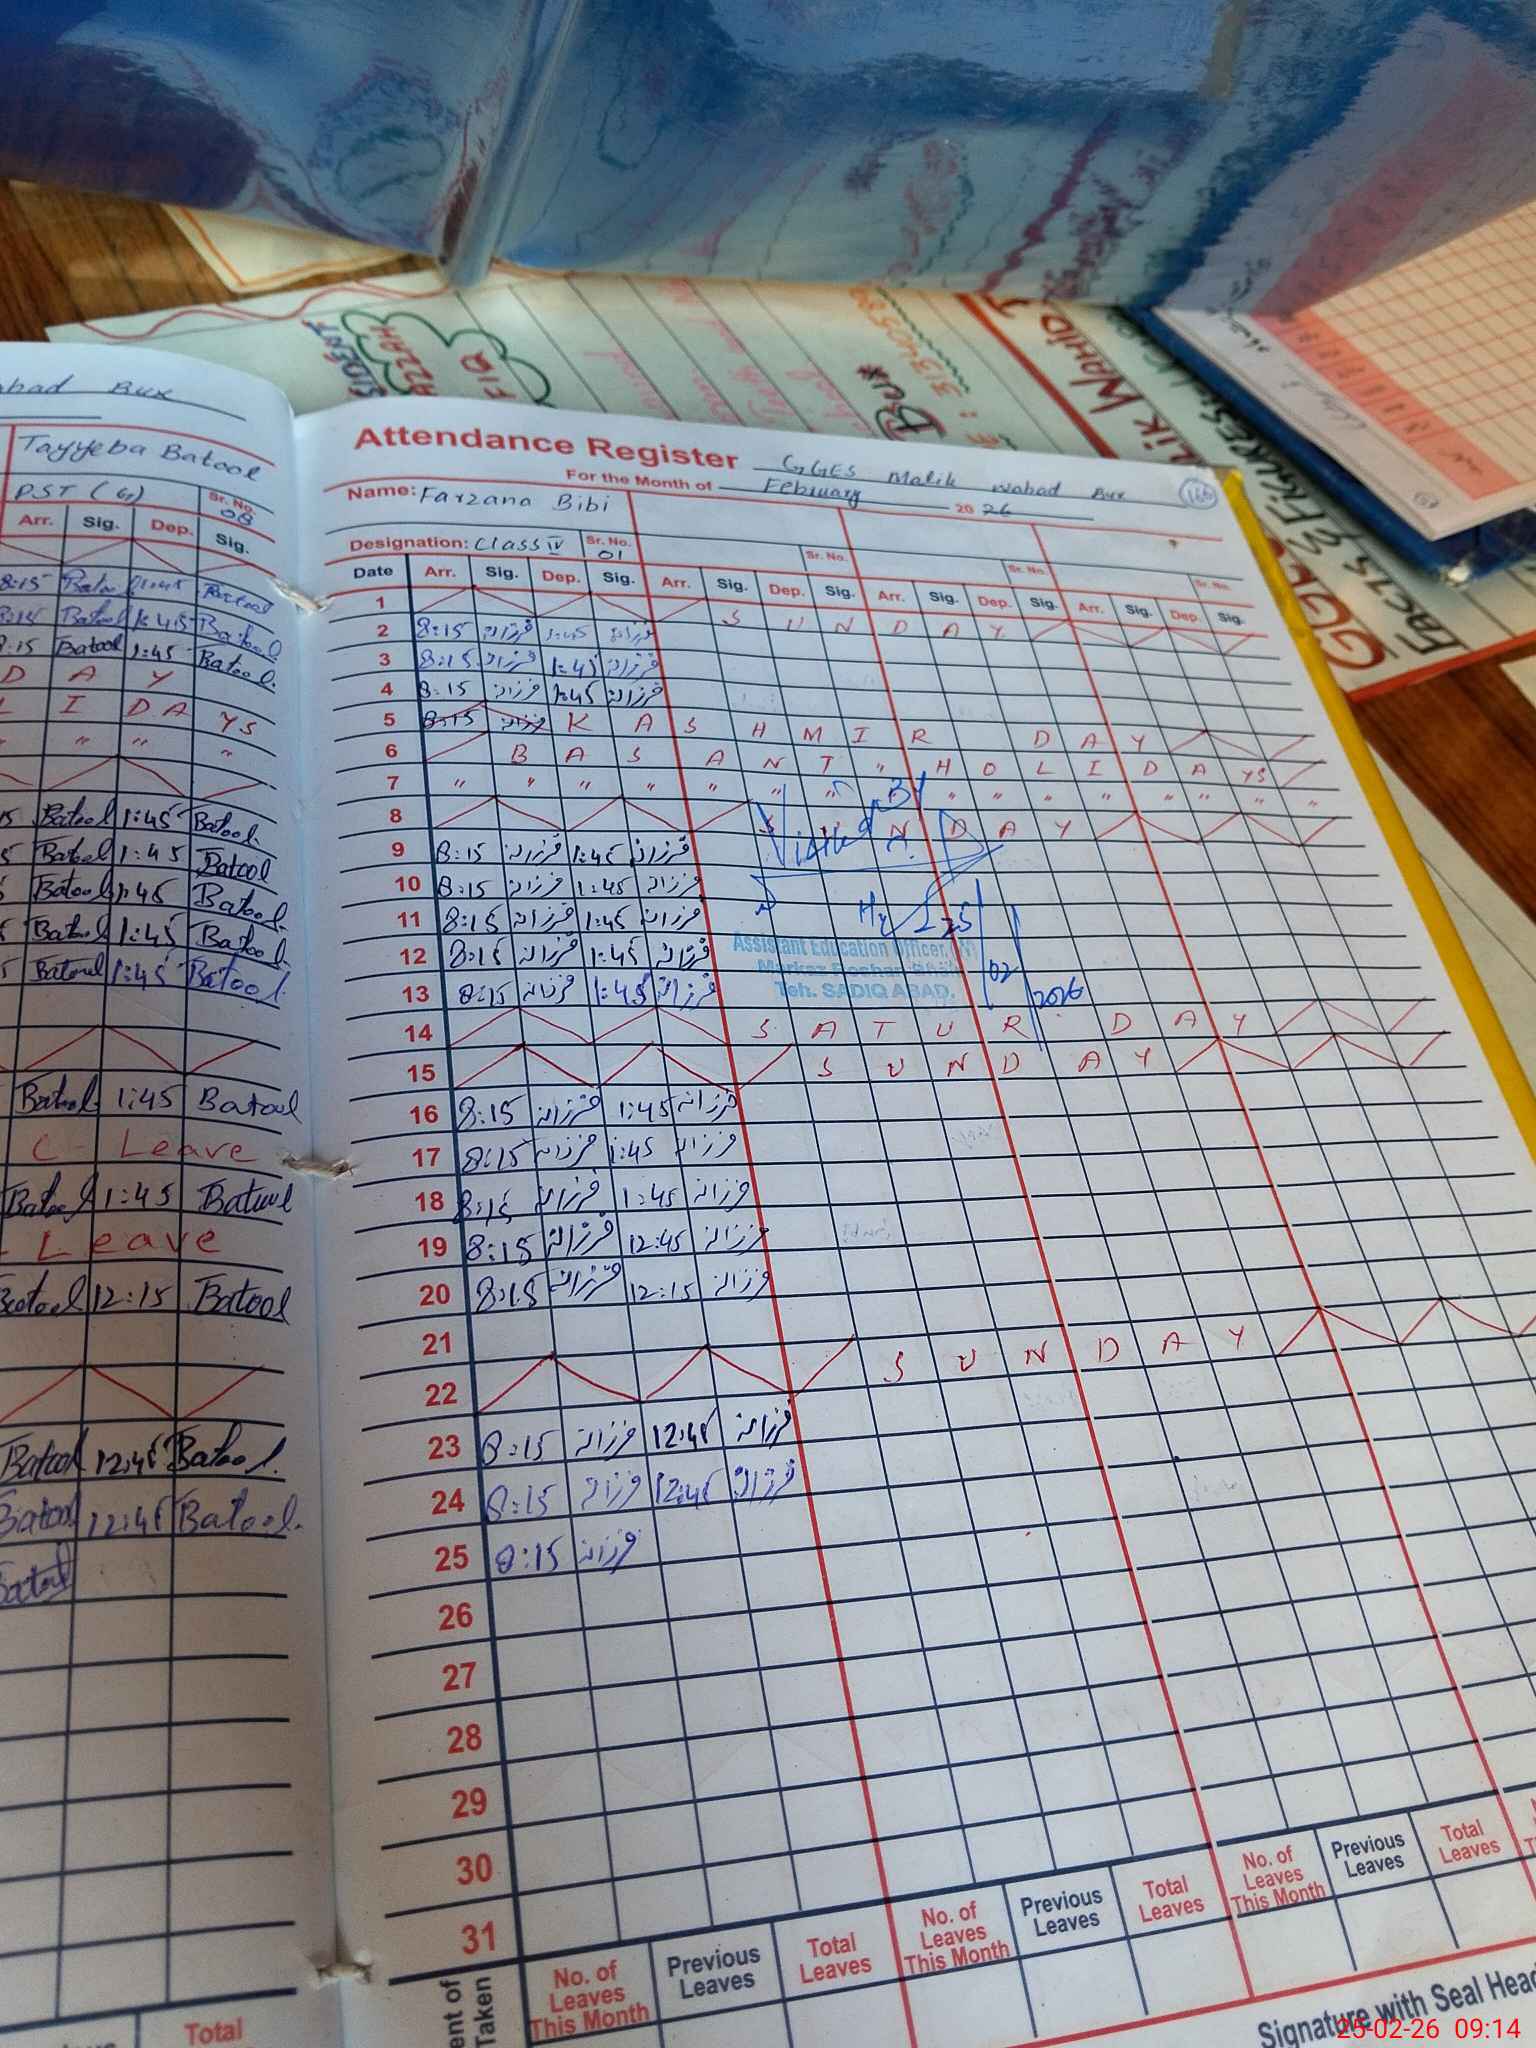 ahad Bux
Tayyeba Batool
PST (G)
Sr. No.
08
Arr. Sig. Dep. Sig.
8:15 Batool 1:45 Batool
8:15 Batool 1:45 Batool
8:15 Batool 1:45 Batool.
D A Y
L I D A Y S
" " " "
15 Batool 1:45 Batool.
5 Batool 1:45 Batool
Batool 1:45 Batool.
5 Batool 1:45 Batool.
5 Batool 1:45 Batool.
Batool 1:45 Batool
C - Leave
Batool 1:45 Batool
- Leave
Batool 12:15 Batool
Batool 12:45 Batool.
Batool 12:45 Batool.
Batool
Total
Attendance Register GGES Malik Wahad Bux
166
For the Month of February 2026
Name: Farzana Bibi
Designation: Class IV Sr. No. 01 Sr. No. Sr. No. Sr. No.
Date Arr. Sig. Dep. Sig. Arr. Sig. Dep. Sig. Arr. Sig. Dep. Sig. Arr. Sig. Dep. Sig.
1 S U N D A Y
2 8:15 فرزانہ 1:45 فرزانہ
3 8:15 فرزانہ 1:45 فرزانہ
4 8:15 فرزانہ 1:45 فرزانہ
5 8:15 فرزانہ K A S H M I R D A Y
6 B A S A N T " H O L I D A YS
7 " " " " " " " " " " " " " "
8 S U N D A Y
9 8:15 فرزانہ 1:45 فرزانہ
10 8:15 فرزانہ 1:45 فرزانہ
11 8:15 فرزانہ 1:45 فرزانہ
12 8:15 فرزانہ 1:45 فرزانہ
13 8:15 فرزانہ 1:45 فرزانہ
Visited By
25/02/2026
Assistant Education Officer,
Markaz Roshan
Teh. SADIQ ABAD.
14 S A T U R D A Y
15 S U N D A Y
16 8:15 فرزانہ 1:45 فرزانہ
17 8:15 فرزانہ 1:45 فرزانہ
18 8:15 فرزانہ 1:45 فرزانہ
19 8:15 فرزانہ 12:45 فرزانہ
20 8:15 فرزانہ 12:15 فرزانہ
21
22 S U N D A Y
23 8:15 فرزانہ 12:45 فرزانہ
24 8:15 فرزانہ 12:45 فرزانہ
25 8:15 فرزانہ
26
27
28
29
30
31
No. of Leaves This Month Previous Leaves Total Leaves No. of Leaves This Month Previous Leaves Total Leaves No. of Leaves This Month Previous Leaves Total Leaves
Signature with Seal Head
25-02-26 09:14